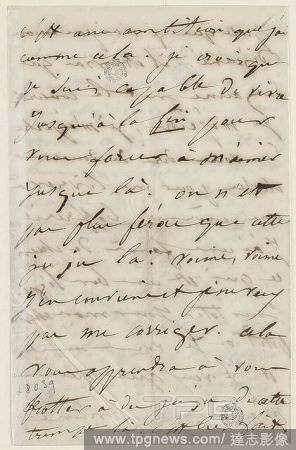 c'est une ambition que j'ai
comme cela je crois que
je suis capable de vivre
jusqu'à la fin pour
vous forcer à m'aimer
jusque là. on n'est
pas plus féroce que cette
ju ju là. voime, voime
j'en conviens et je ne veux
pas me corriger. cela
vous apprendra à vous
frotter à des ju ju de cette
trempe là. C'est bien fait
28039
TPG
www.tpgnews.com / 達志影像